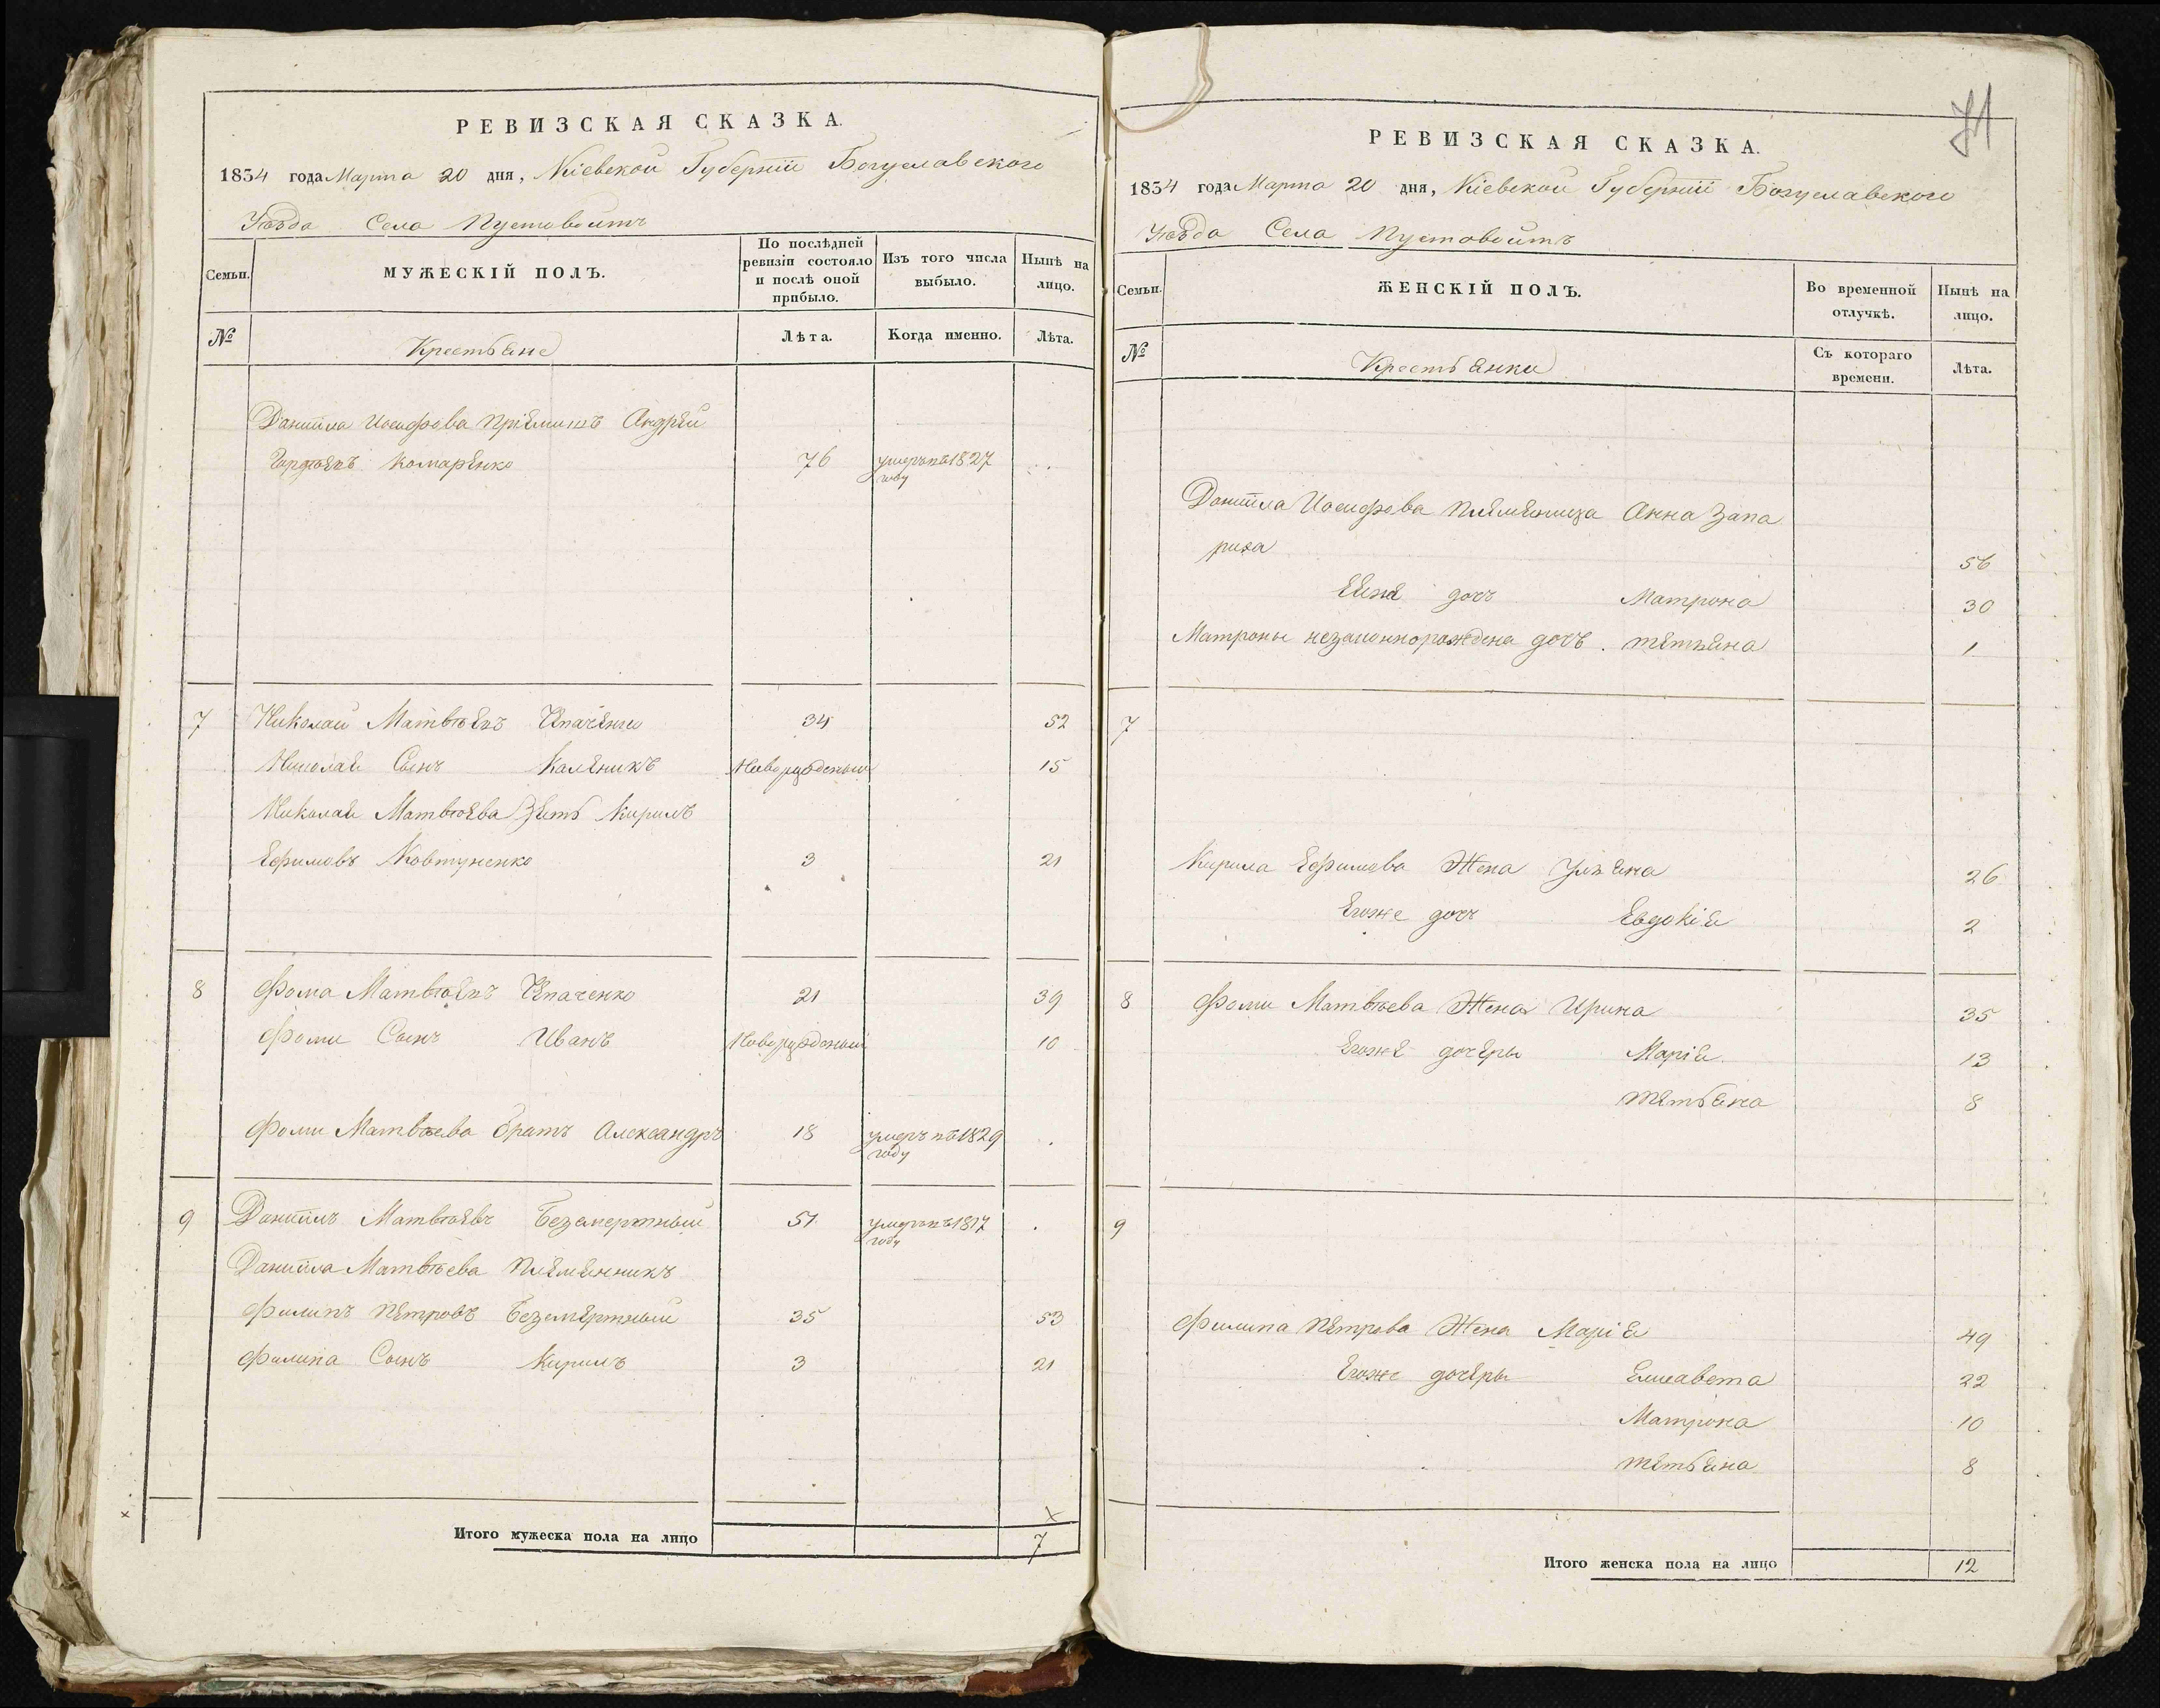 РЕВИЗСКАЯ СКАЗКА.
1834 года Марта 20 дня, Кіевской Губерніи Богуславского
Уѣзда Села Пустовойтъ
Семьи.
МУЖЕСКІЙ ПОЛЪ.
По послѣдней ревизіи состояло и послѣ оной прибыло.
Изъ того числа выбыло.
Нынѣ на лицо.
№
Крестьяне
Лѣта.
Когда именно.
Лѣта.
Даниила Иосифова Пріемишъ Андрей
Комаренко 76 умеръ въ 1827 году
7 Николай Матвѣевъ 34 52
Николая Сынъ Каленикъ Новорожденый 15
Николая Матвѣева Зять Кирилъ
Ефимовъ Ковтуненко 3 21
8 Фома Матвѣевъ 21 39
Фоми Сынъ Иванъ Новорожденый 10
Фоми Матвѣева Братъ Александръ 18 умеръ въ 1829 году
9 Даниилъ Матвѣевъ Безсмертный 51 умеръ въ 1817 году
Даниила Матвѣева Племянникъ
Филипъ Петровъ Безсмертный 35 53
Филипа Сынъ Кирилъ 3 21
Итого мужеска пола на лицо 7
71
РЕВИЗСКАЯ СКАЗКА.
1834 года Марта 20 дня, Кіевской Губерніи Богуславского
Уѣзда Села Пустовойтъ
Семьи.
ЖЕНСКІЙ ПОЛЪ.
Во временной отлучкѣ.
Нынѣ на лицо.
№
Крестьянки
Съ котораго времени.
Лѣта.
Даниила Иосифова Племяница Анна Запа
риха 56
Еяже дочъ Матрона 30
Матроны незаконнорождена дочъ. Татьяна 1
7
Кирила Ефимова Жена Ульяна 26
Егоже дочъ Евдокія 2
8 Фоми Матвѣева Жена Ирина 35
Егоже дочеры Марія 13
Татьяна 8
9
Филипа Петрова Жена Марія 49
Егоже дочеры Елисавета 22
Матрона 10
Татьяна 8
Итого женска пола на лицо 12